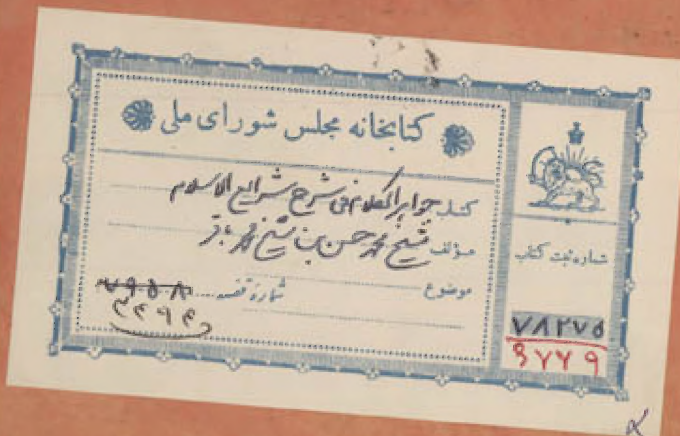 کتابخانه مجلس شورای ملی
کتاب جواهر الکلام فی شرح شرایع الاسلام
مؤلف شیخ محمد حسن بن شیخ محمد باقر
موضوع
شماره قفسه
شماره ثبت کتاب
۷۸۲۷۵